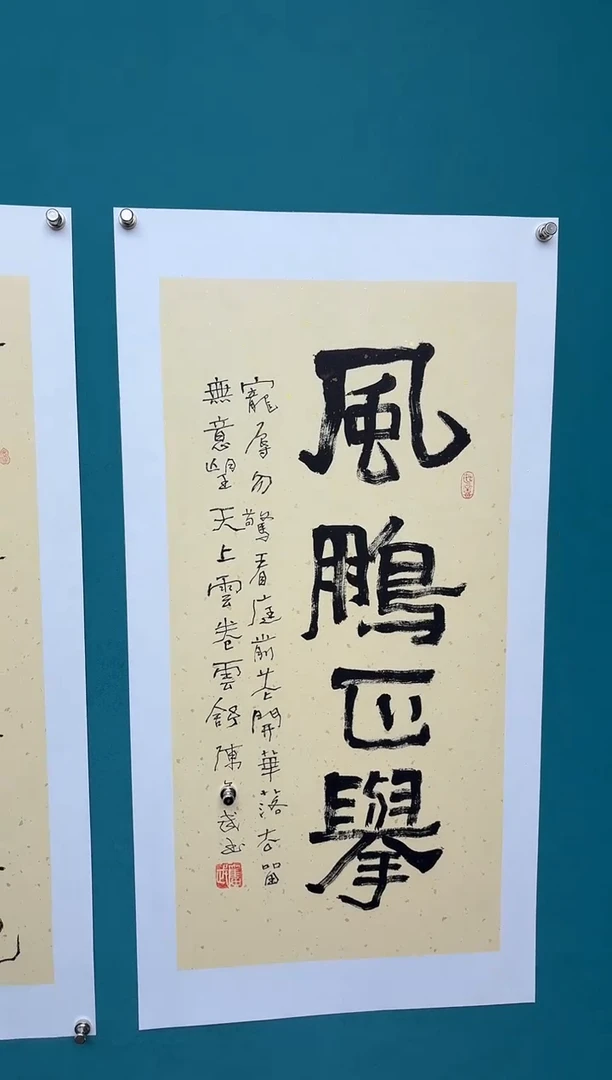 風鵬正舉
寵辱勿驚看庭前花開華落去留
無意望天上雲卷雲舒陳武书